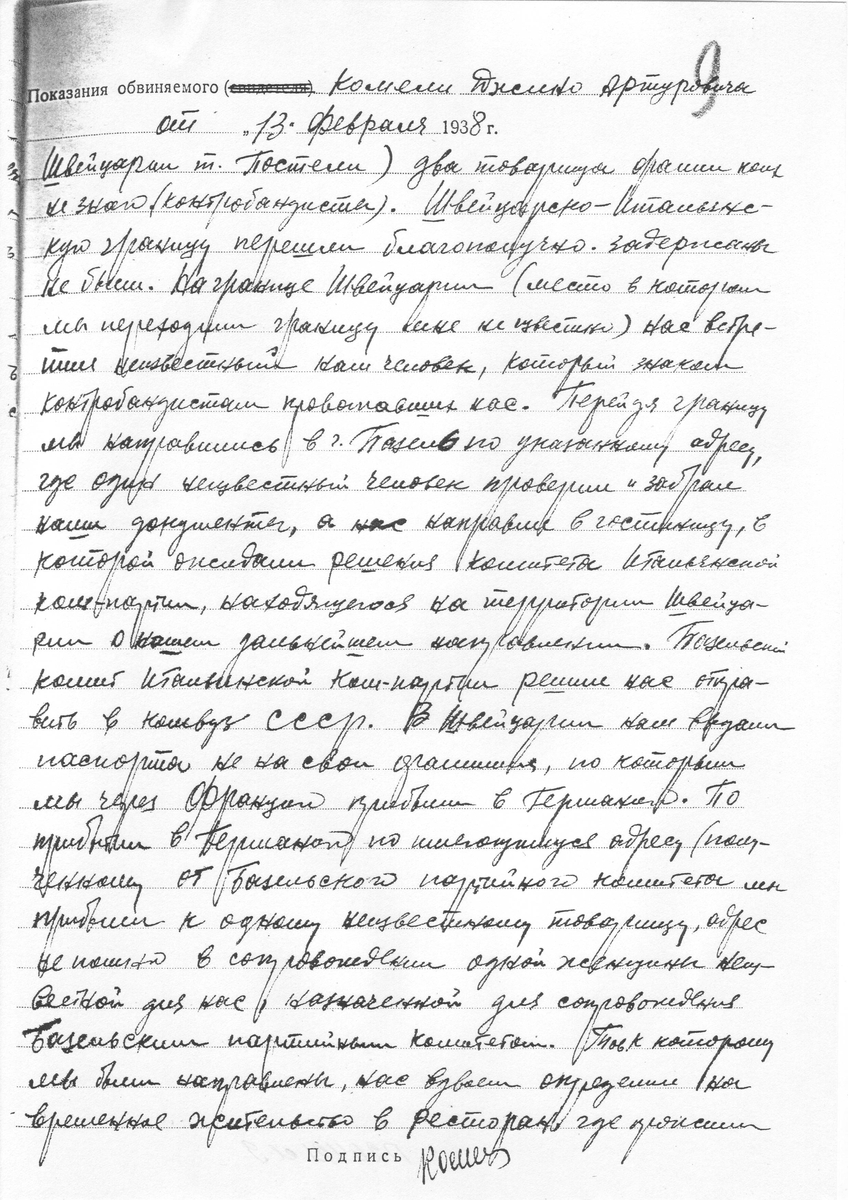 9
Показания обвиняемого (свидетеля), Комели Джино Артуровича
от „13" февраля 1938 г.
Швейцарии т. Постели) два товарища фамилии коих
не знаю (контрабандисты). Швейцарско-Итальянс-
кую границу перешли благополучно. Задержаны
не были. На границе Швейцарии (место в котором
мы переходили границу мне не известно) нас встре-
тил неизвестный нам человек, который знаком
контробандистам провожавших нас. Перейдя границу
мы направились в г. Базель по указанному адресу,
где один неизвестный человек проверил и забрал
наши документы, а нас направил в гостиницу, в
которой ожидали решения комитета Итальянской
ком-партии, находящегося на территории Швейца-
рии о нашем дальнейшем направлении. Базельский
комит Итальянской Ком-партии решил нас отпра-
вить в комвуз СССР. В Швейцарии нам выдали
паспорта не на свои фамилии, по которым
мы через Францию прибыли в Германию. По
прибытии в Германию по имеющемуся адресу (полу-
ченному от Базельского партийного комитета мы
прибыли к одному неизвестному товарищу, адрес
не помню в сопровождении одной женщины неиз-
вестной для нас, назначенной для сопровождения
Базельским партийным комитетом. Тов. к которому
мы были направлены, нас вдвоем определил на
временное жительство в ресторан где прожили
Подпись